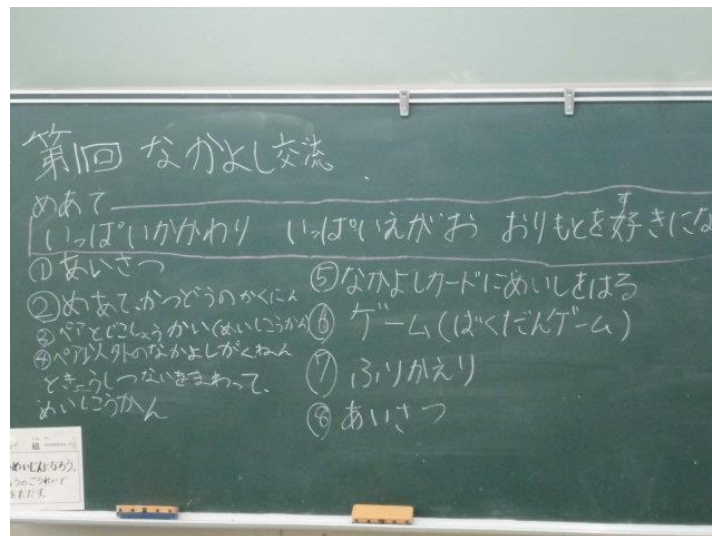 第1回 なかよし交流
めあて
いっぱいかかわり いっぱいえがお おりもとを好きにな
す
①あいさつ
②めあて、かつどうのかくにん
③ペアとじこしょうかい(めいしこうかん)
④ペア以外のなかよしがくねん
ときょうしつないをまわって、
めいしこうかん
⑤なかよしカードにめいしをはる
⑥ゲーム(ばくだんゲーム)
⑦ふりかえり
⑧あいさつ
めいじんになろう。